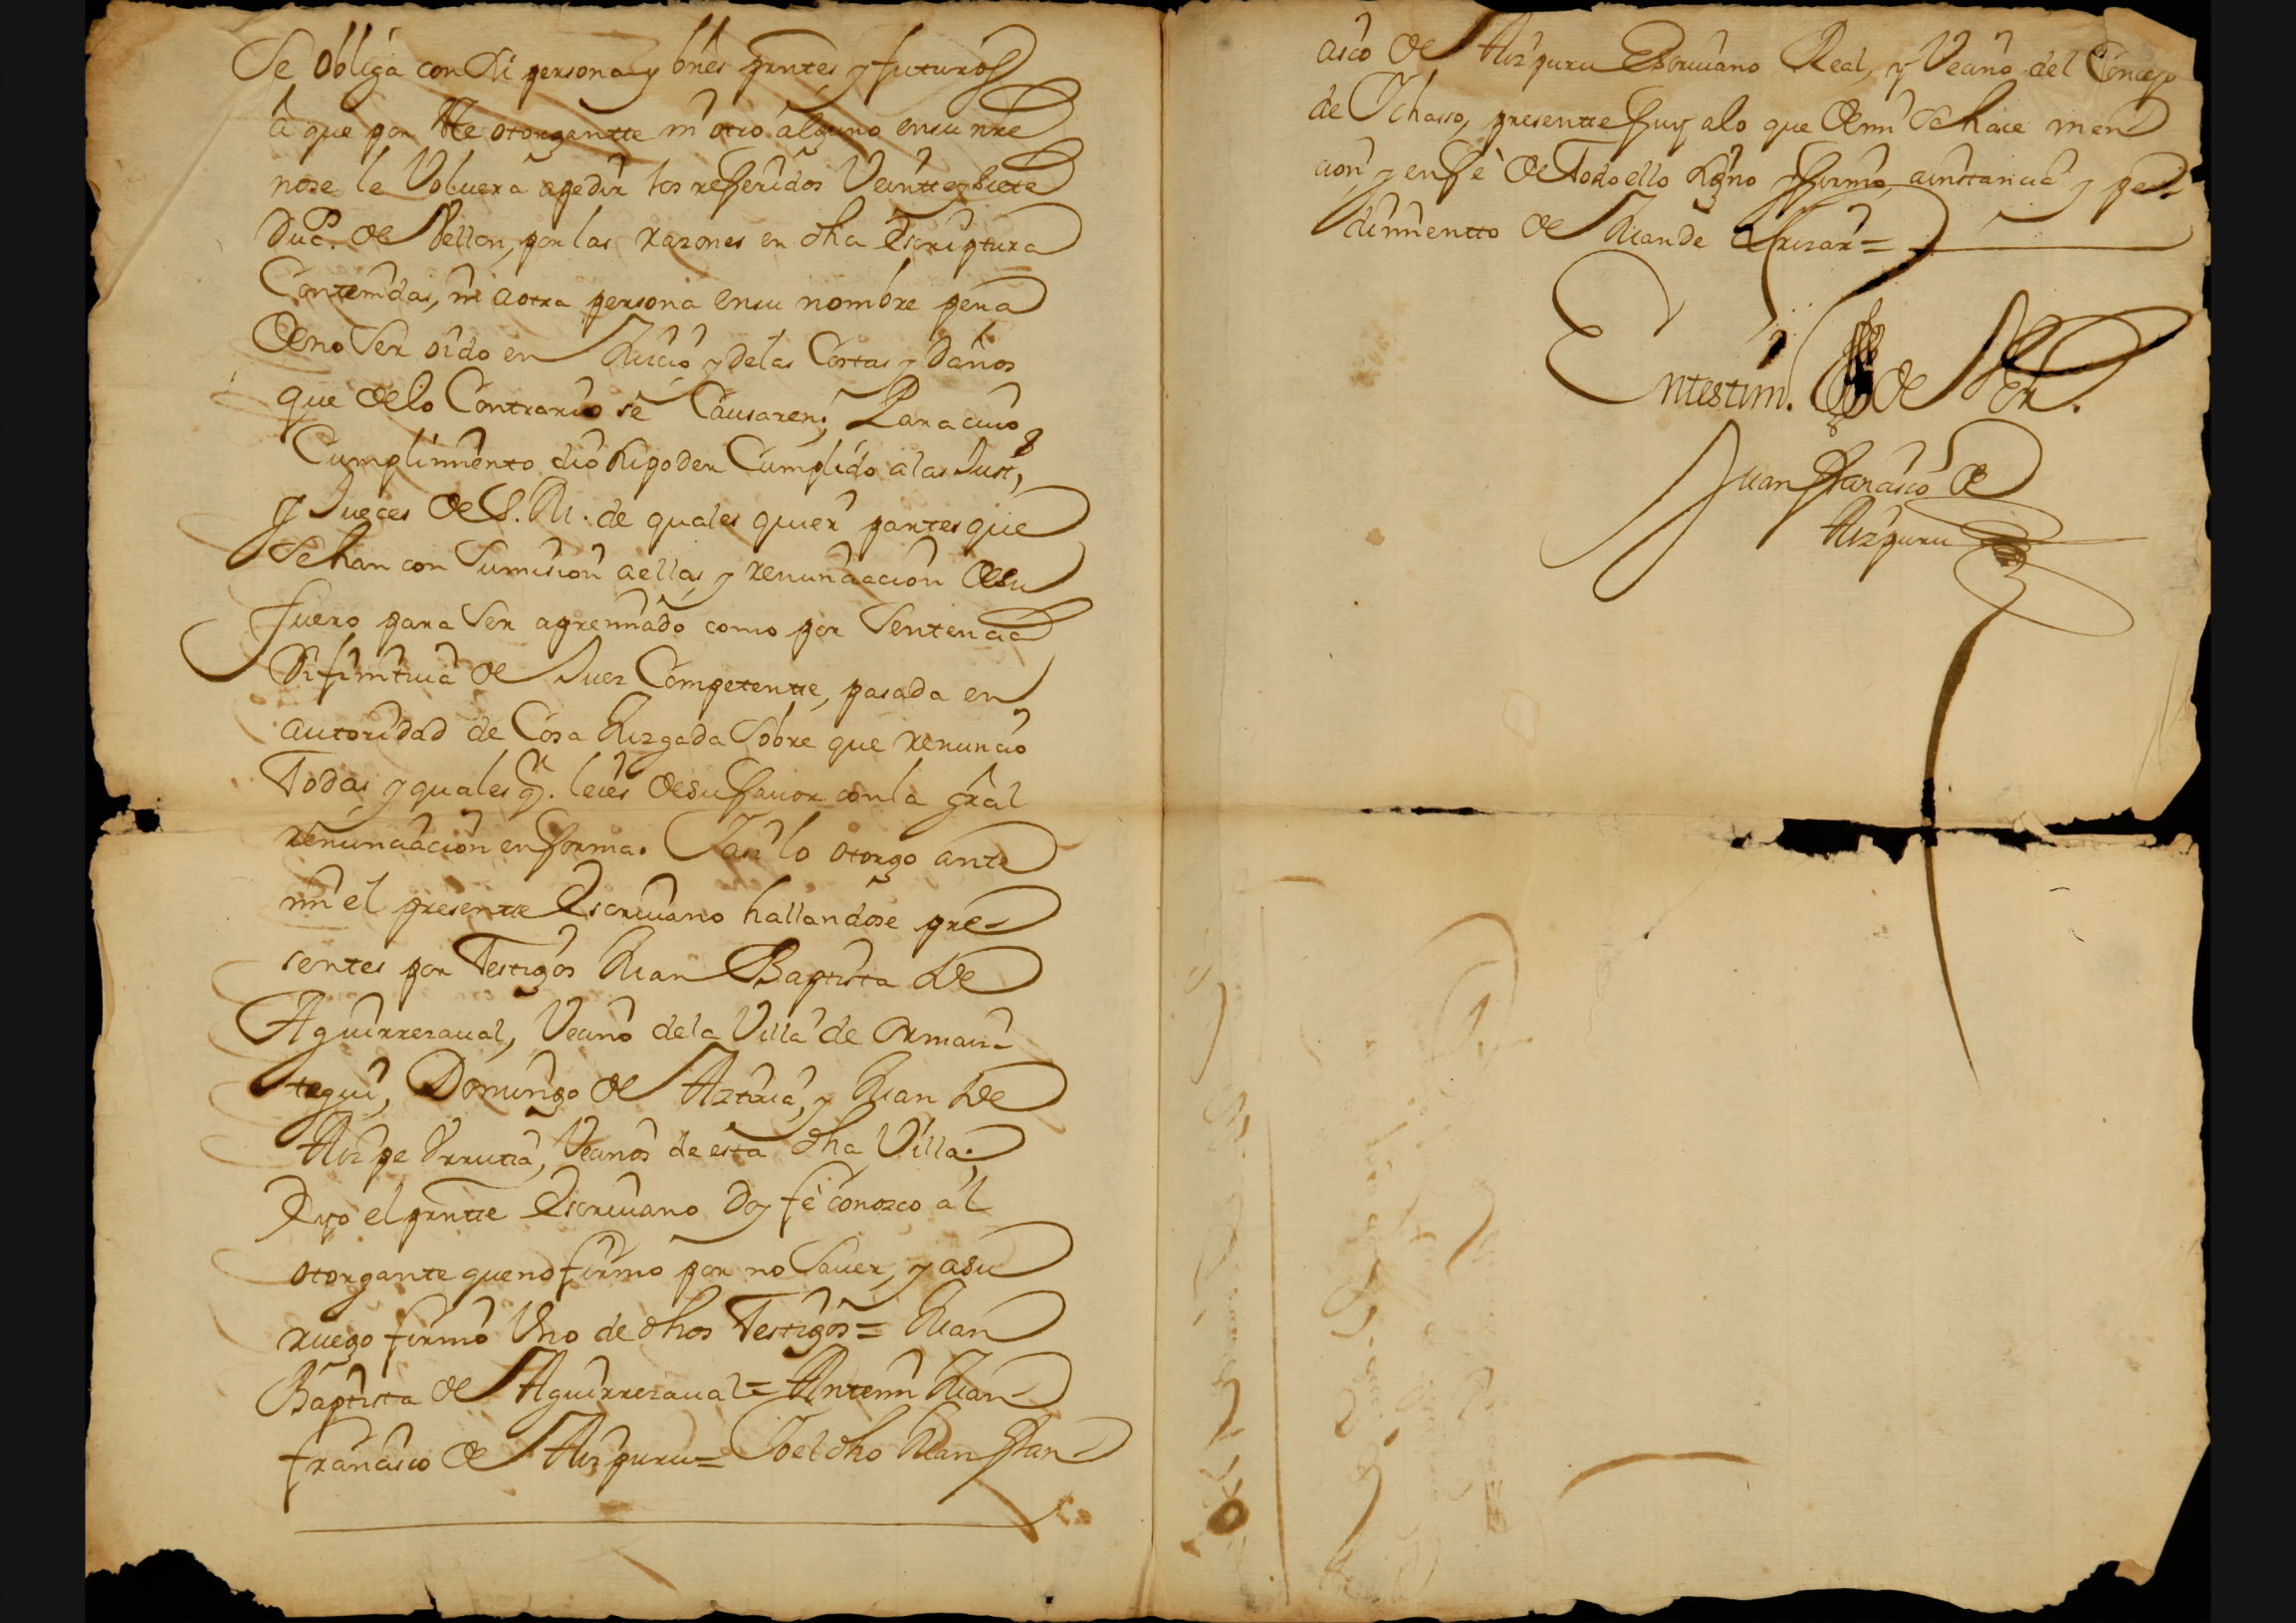 Se obliga con su persona y bñes prntes y futuros
â que por Este otorgantte ni otro alguno en su nre
no se le Voluera a pedir los referidos Veintte y siete
Duc.s de Vellon, por las razones en dha Escriptura
Contenidas, ni a otra persona en su nombre pena
de no ser oido en Juicio y de las Costas y daños
que de lo Contrario se Causaren; Para cuio
Cumplimiento dio su poder Cumplido a las Just.s
y Jueces de S. M. de quales quier partes que
Sehan con Sumision a ellas, y renunciacion de su
fuero para Ser apremiado como por Sentencia
Difinitiua de Juez Competentte, pasada en
autoridad de Cosa Juzgada Sobre que renuncio
Todas y quales q.r leies de su fauor con la gral
renunciacion en forma. Y asi lo otorgo ante
mi el presentte Escriuano hallandose pre-
sentes por Testigos Juan Baptista de
Aguirrezaual, Vecino de la Villa de Ormaiz-
tegui, Domingo de Aztiria, y Juan de
Aizpe Vrrutia, Vecinos de esta dha Villa.
E yo el prntte Escriuano doy fè conozco al
otorgante que no firmo por no Sauer, y a su
ruego firmò Vno de dhos Testigos = Juan
Baptista de Aguirrezaual = Ante mi Juan
francisco de Aizpuru = Yo el dho Juan Fran-
cisco de Aizpuru Escriuano Real, y Vecino del Concejo
de Ichasso, presentte fuy a lo que de mi se hace men
cion y en fè de Todo ello signo y firmo, a instancia y pe-
dimientto de Juan de =
En testim. de Ver.
Juan Francisco de
Aizpuru